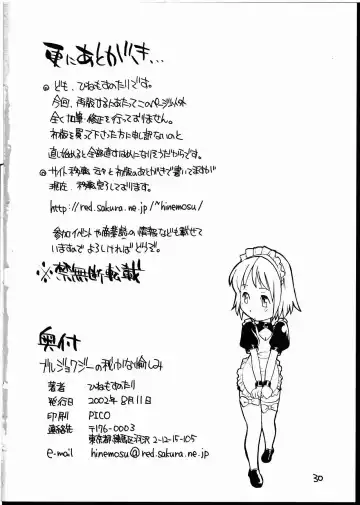 更にあとがき...
◎ ども、ひねもすのたりです。
今回、再販するにあたってこのページ以外
全く加筆・修正を行っておりません。
初版を買って下さった方に申し訳ないのと
直し始めると全部直すはめになりそうだからです。
◎ サイト移転 云々と初版のあとがきで書いてますが
現在、移転完了しております。
http://red.sakura.ne.jp/~hinemosu/
参加イベントや商業誌の情報なども載せて
いますので よろしければどうぞ。
※禁無断転載
奥付
ブルジョワジーの秘かな愉しみ
著者 ひねもすのたり
発行日 2002年8月11日
印刷 PICO
連絡先 〒176-0003
東京都練馬区羽沢2-12-15-105
e-mail hinemosu@red.sakura.ne.jp
30